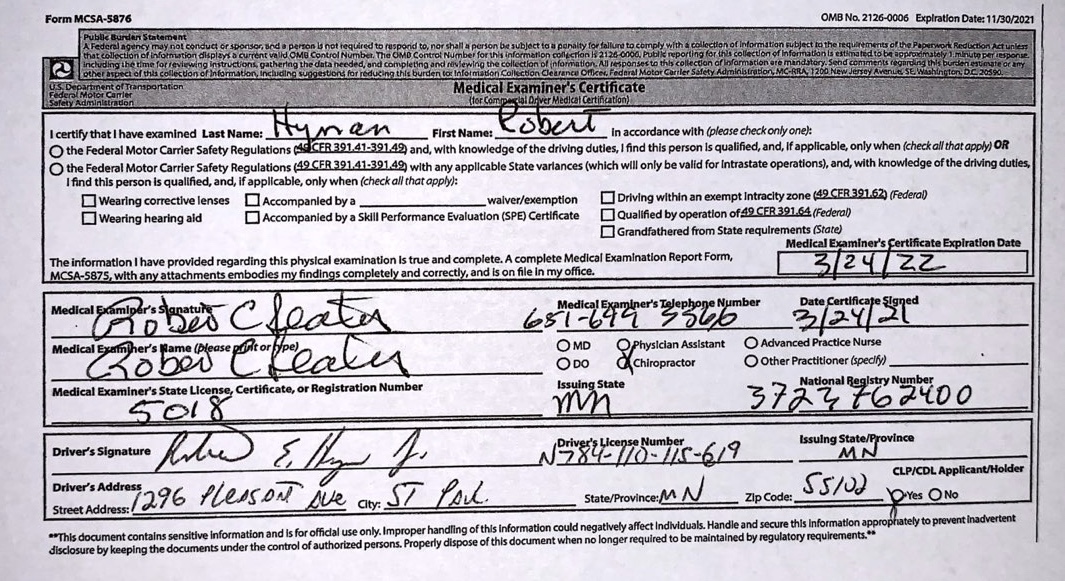 Form MCSA-5876 OMB No. 2126-0006 Expiration Date: 11/30/2021
Public Burden Statement
A Federal agency may not conduct or sponsor, and a person is not required to respond to, nor shall a person be subject to a penalty for failure to comply with a collection of information subject to the requirements of the Paperwork Reduction Act unless
that collection of information displays a current valid OMB Control Number. The OMB Control Number for this information collection is 2126-0006. Public reporting for this collection of information is estimated to be approximately 1 minute per response,
including the time for reviewing instructions, gathering the data needed, and completing and reviewing the collection of information. All responses to this collection of information are mandatory. Send comments regarding this burden estimate or any
other aspect of this collection of information, including suggestions for reducing this burden to: Information Collection Clearance Officer, Federal Motor Carrier Safety Administration, MC-RRA, 1200 New Jersey Avenue, SE, Washington, D.C. 20590.
U.S. Department of Transportation
Federal Motor Carrier
Safety Administration
Medical Examiner's Certificate
(for Commercial Driver Medical Certification)
I certify that I have examined Last Name: Hyman First Name: Robert in accordance with (please check only one):
the Federal Motor Carrier Safety Regulations (49 CFR 391.41-391.49) and, with knowledge of the driving duties, I find this person is qualified, and, if applicable, only when (check all that apply) OR
the Federal Motor Carrier Safety Regulations (49 CFR 391.41-391.49) with any applicable State variances (which will only be valid for intrastate operations), and, with knowledge of the driving duties,
I find this person is qualified, and, if applicable, only when (check all that apply):
Wearing corrective lenses Accompanied by a waiver/exemption Driving within an exempt intracity zone (49 CFR 391.62) (Federal)
Wearing hearing aid Accompanied by a Skill Performance Evaluation (SPE) Certificate Qualified by operation of 49 CFR 391.64 (Federal)
Grandfathered from State requirements (State)
Medical Examiner's Certificate Expiration Date
The information I have provided regarding this physical examination is true and complete. A complete Medical Examination Report Form,
MCSA-5875, with any attachments embodies my findings completely and correctly, and is on file in my office.
3/24/22
Medical Examiner's Signature Medical Examiner's Telephone Number Date Certificate Signed
3/24/21
Medical Examiner's Name (please print or type) MD Physician Assistant Advanced Practice Nurse
DO Chiropractor Other Practitioner (specify)
Medical Examiner's State License, Certificate, or Registration Number Issuing State National Registry Number
5018 MN 3723762400
Driver's Signature Driver's License Number Issuing State/Province
N784-110-115-619 MN
Driver's Address CLP/CDL Applicant/Holder
Street Address: 1296 City: ST Paul State/Province: MN Zip Code: 55102 Yes No
**This document contains sensitive information and is for official use only. Improper handling of this information could negatively affect individuals. Handle and secure this information appropriately to prevent inadvertent
disclosure by keeping the documents under the control of authorized persons. Properly dispose of this document when no longer required to be maintained by regulatory requirements.**